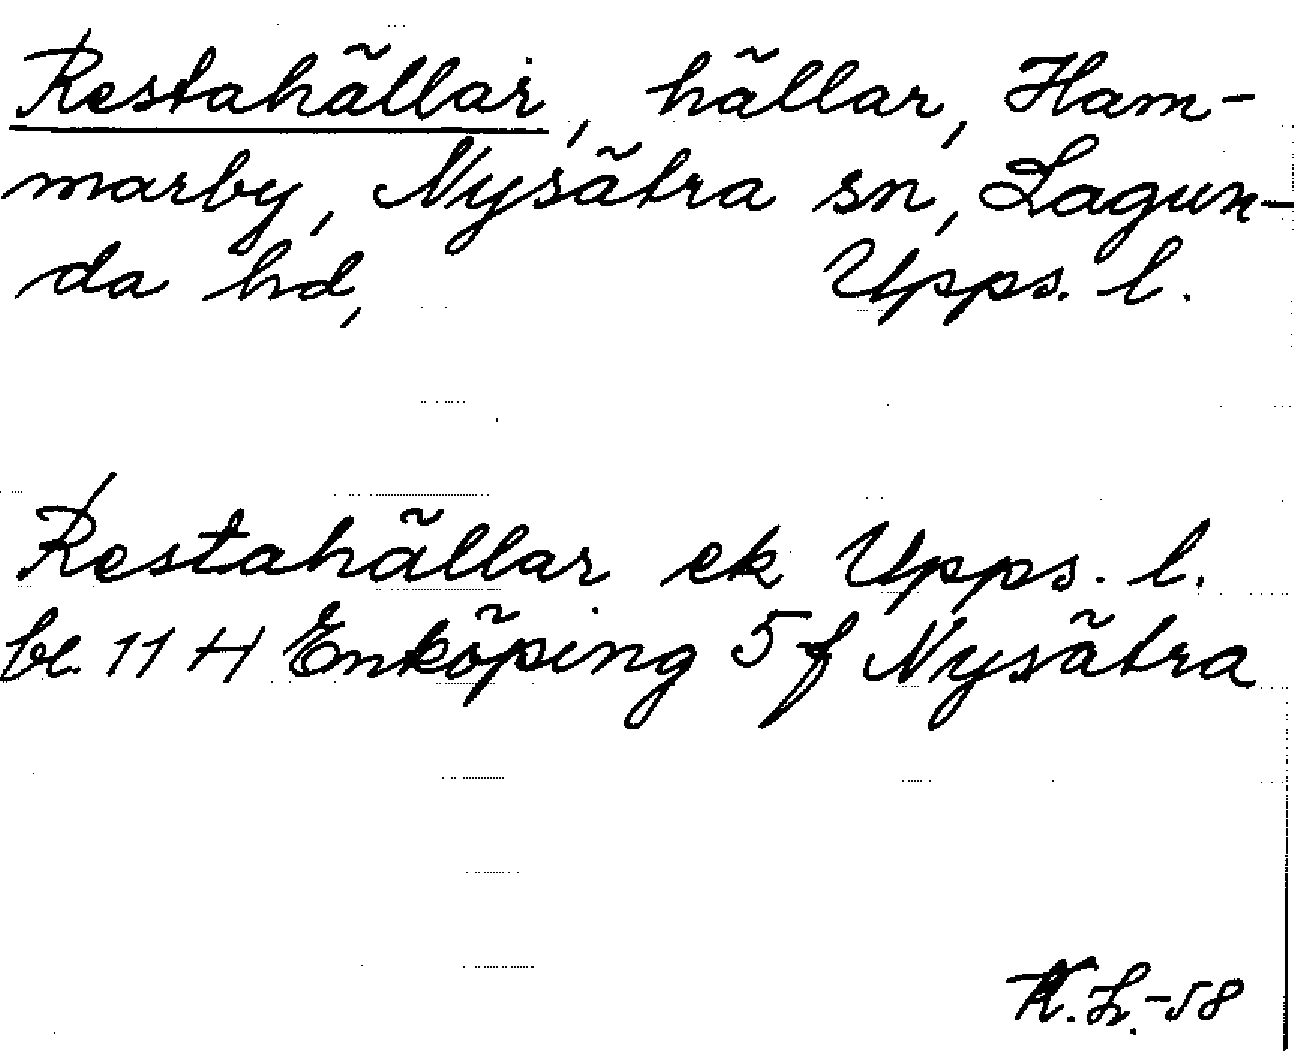 Restahällar, hällar, Ham-
marby, Nysätra sn, Lagun-
da hd, Upps. l.
Restahällar ek Upps. l.
bl. 11 H Enköping 5 f Nysätra
K.L.-58